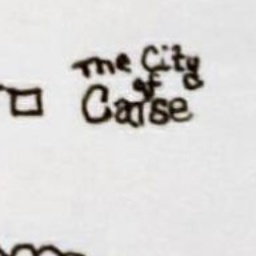 The City
of
Carse